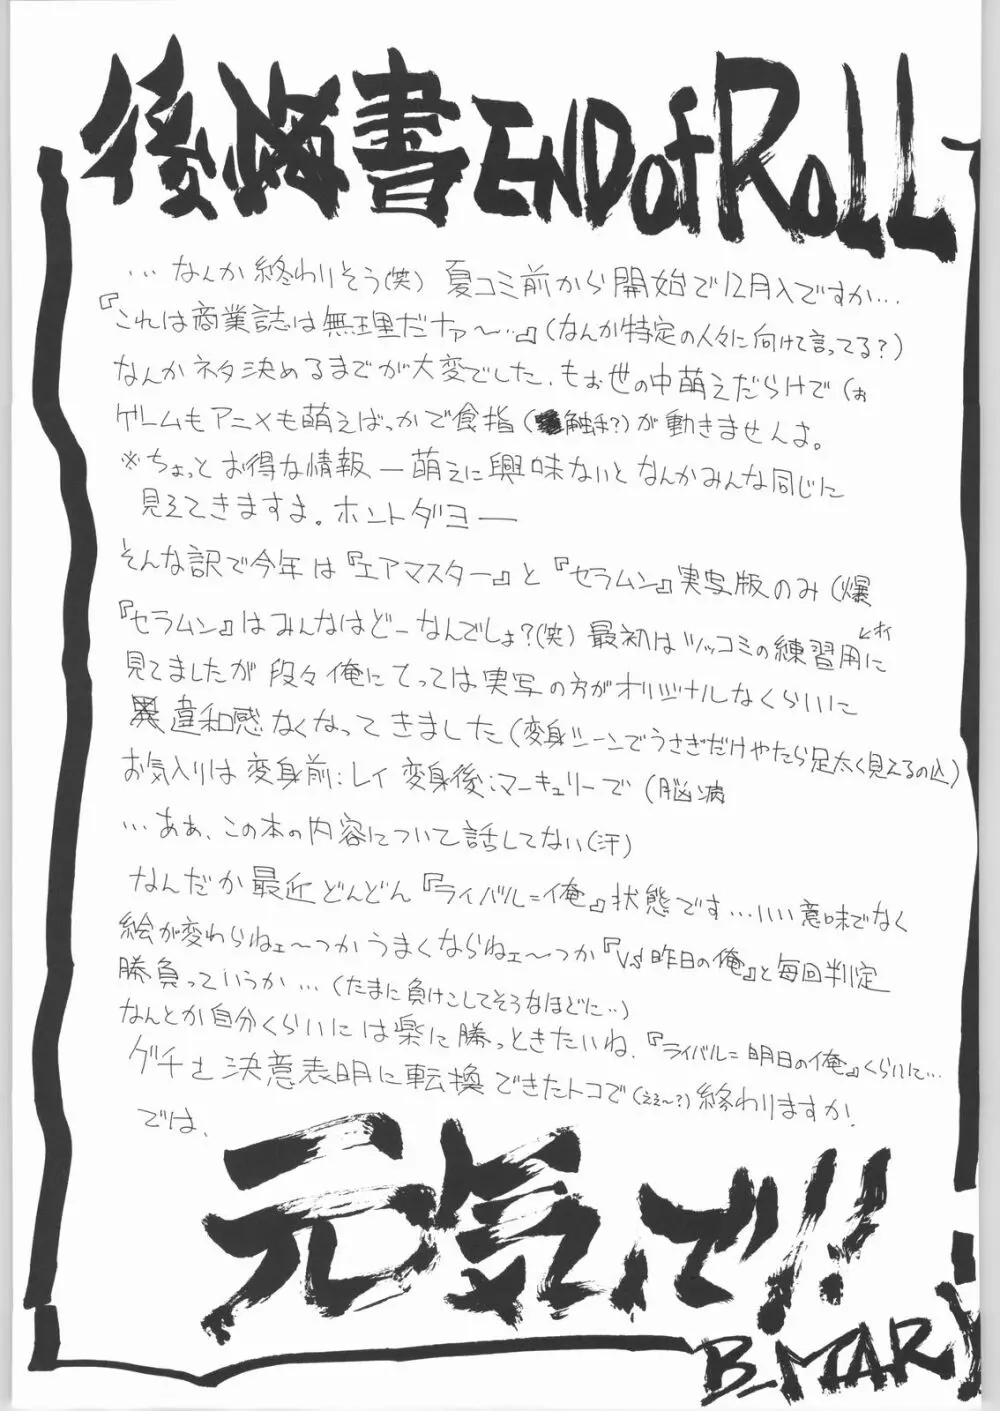 後悔書 END of RoLL
…なんか終わりそう(笑) 夏コミ前から開始で12月入ですか…
『これは商業誌は無理だナァ〜…』(なんか特定の人々に向けて言ってる?)
なんかネタ決めるまでが大変でした、もぉ世の中萌えだらけで(ぉ
ゲームもアニメも萌えばっかで食指(触手?)が動きませんよ。
※ちょっとお得な情報 — 萌えに興味ないとなんかみんな同じに
見えてきますよ。ホントダヨー
そんな訳で今年は『エアマスター』と『セラムン』実写版のみ(爆
『セラムン』はみんなはどーなんでしょ?(笑) 最初はツッコミの練習用に
←オイ
見てましたが段々俺にとっては実写の方がオリジナルなくらいに
違和感なくなってきました(変身シーンでうさぎだけやたら足太く見えるの込)
お気入りは変身前:レイ 変身後:マーキュリーで(脳病
…ああ、この本の内容について話してない(汗)
なんだか最近どんどん『ライバル=俺』状態です…いい意味でなく
絵が変わらねェ〜つかうまくならねェ〜つか『VS昨日の俺』と毎回判定
勝負っていうか…(たまに負けこしてそうなほどに…)
なんとか自分くらいには楽に勝っときたいね、『ライバル=明日の俺』くらいに…
グチを決意表明に転換できたトコで(ええ〜?)終わりますか!
では、
元気で!!
B_MARY